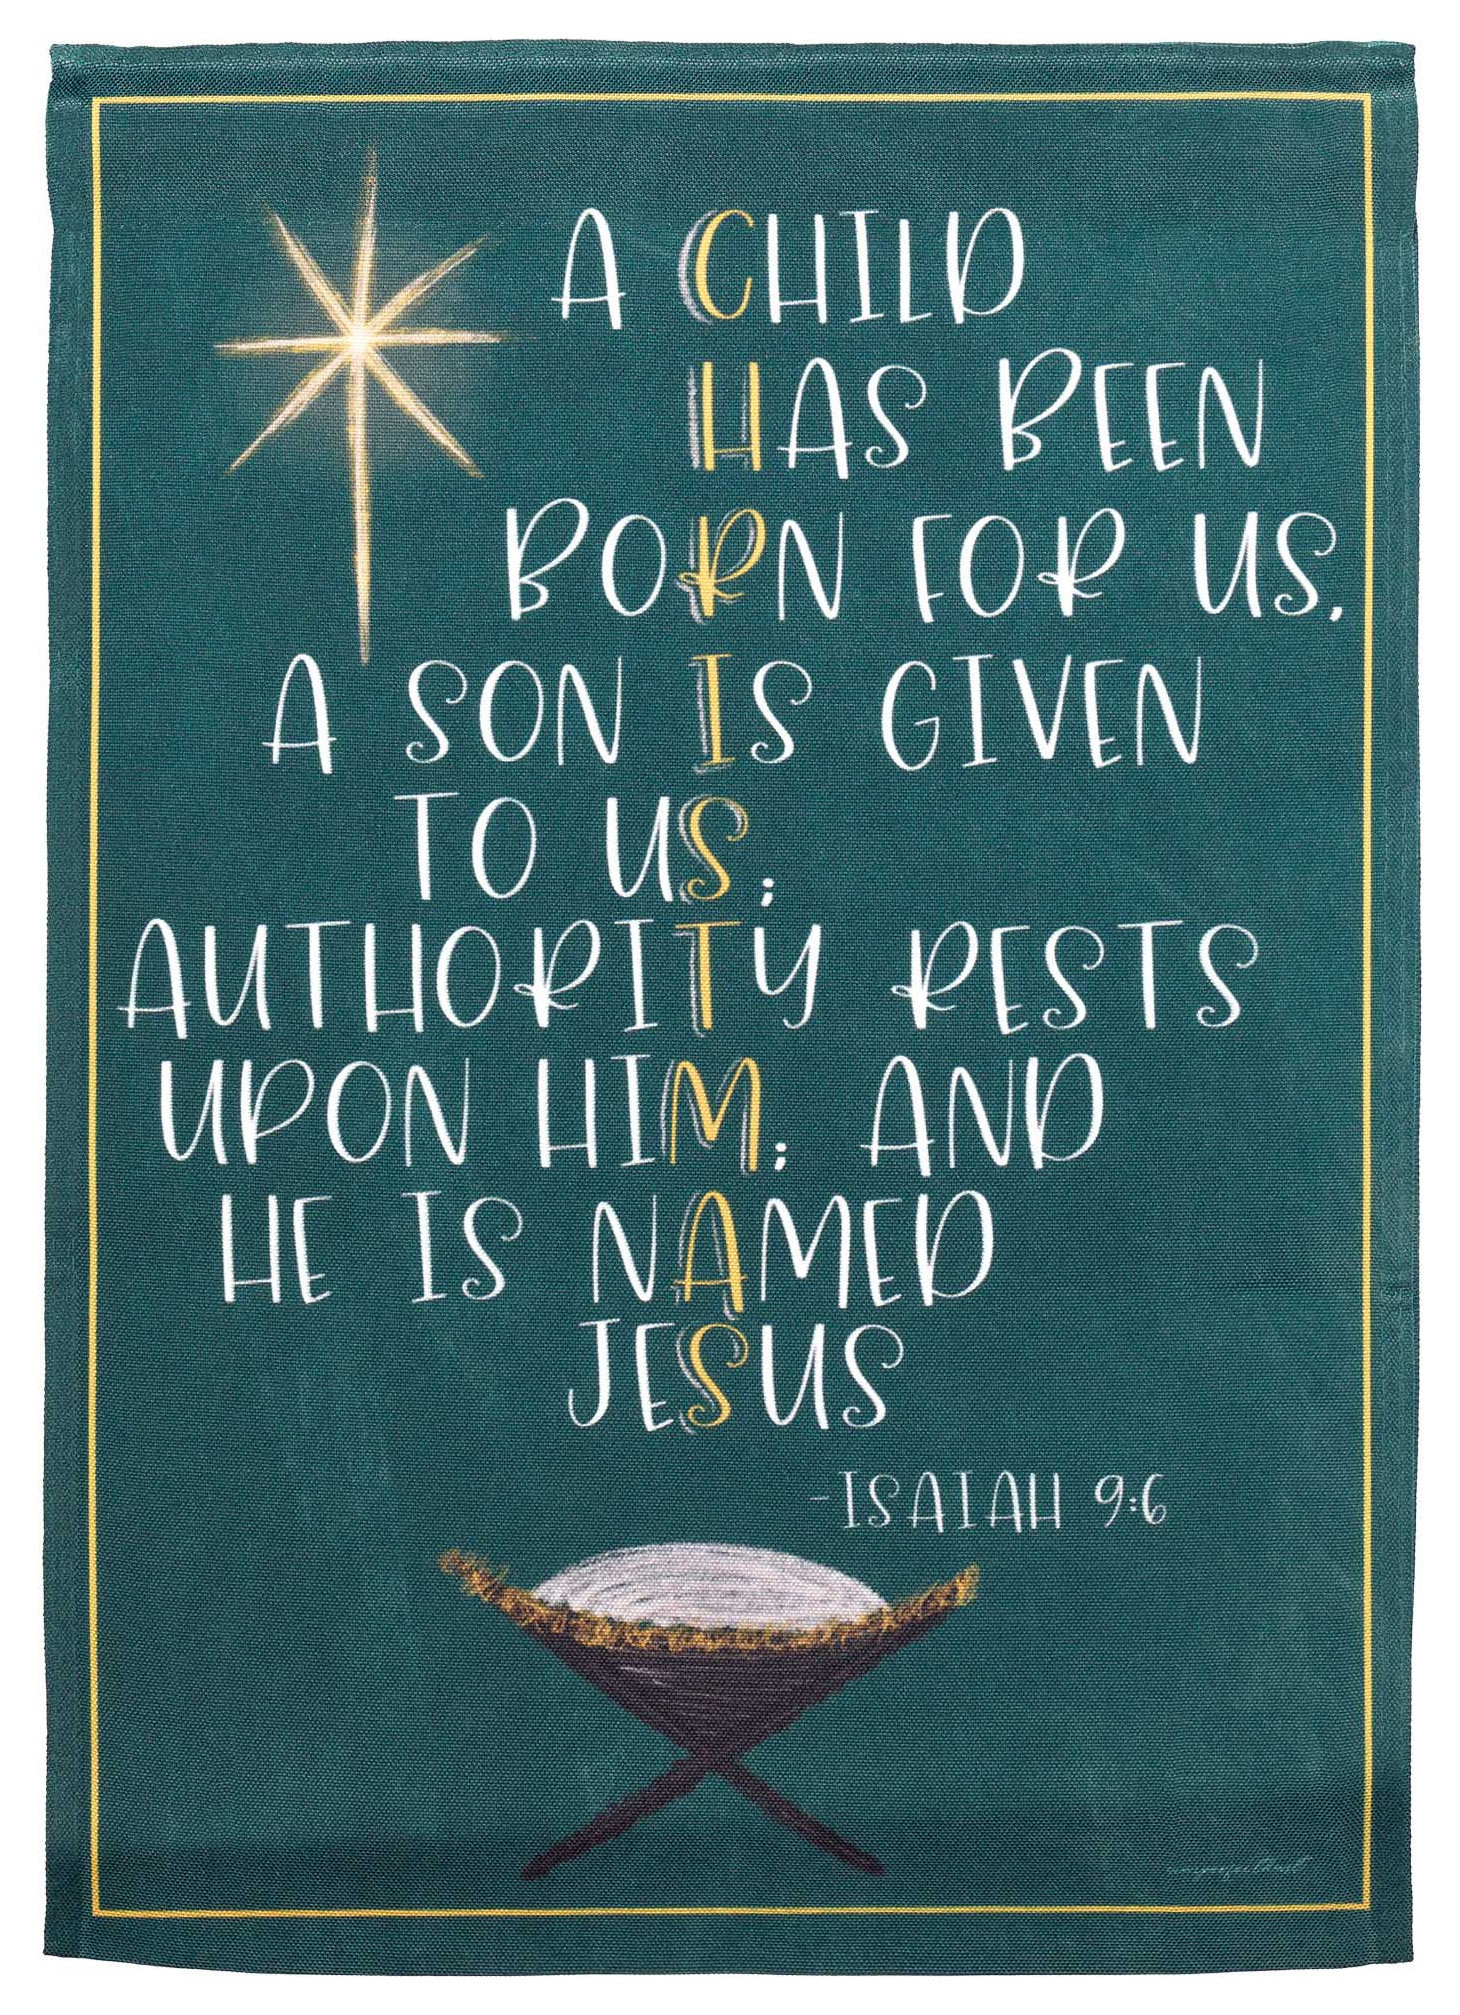 A CHILD
HAS BEEN
BORN FOR US,
A SON IS GIVEN
TO US;
AUTHORITY RESTS
UPON HIM; AND
HE IS NAMED
JESUS
-ISAIAH 9:6